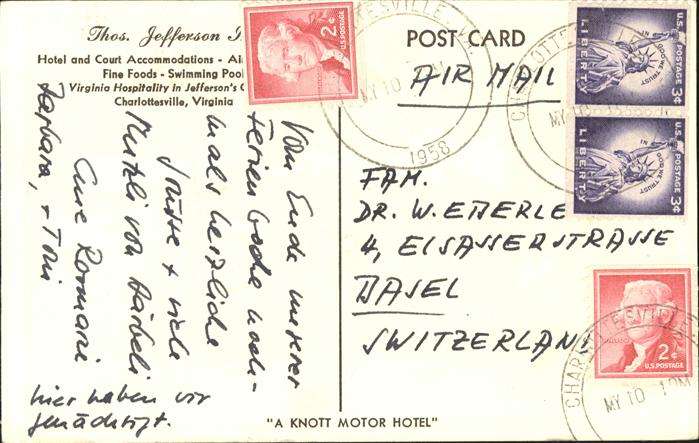 Thos. Jefferson I
Hotel and Court Accommodations - Ai
Fine Foods - Swimming Poo
Virginia Hospitality in Jefferson's C
Charlottesville, Virginia
POST CARD
AIR MAIL
2¢
U.S. POSTAGE
MY 10
1958
CHARLOTTESVILLE
U.S. POSTAGE 3¢
IN GOD WE TRUST
LIBERTY
U.S. POSTAGE 3¢
IN GOD WE TRUST
LIBERTY
Vom Ende unserer
Ferienwoche noch-
mals herzliche
Grüsse + viele
Müntzli von Bärbeli
Eure Rosmarie
Barbara, + Toni
hier haben wir
genächtigt.
FAM.
DR. W. EBERLE
4, ELSÄSSERSTRASSE
BASEL
SWITZERLAND
2¢
U.S. POSTAGE
CHARLOTTESVILLE
MY 10
"A KNOTT MOTOR HOTEL"